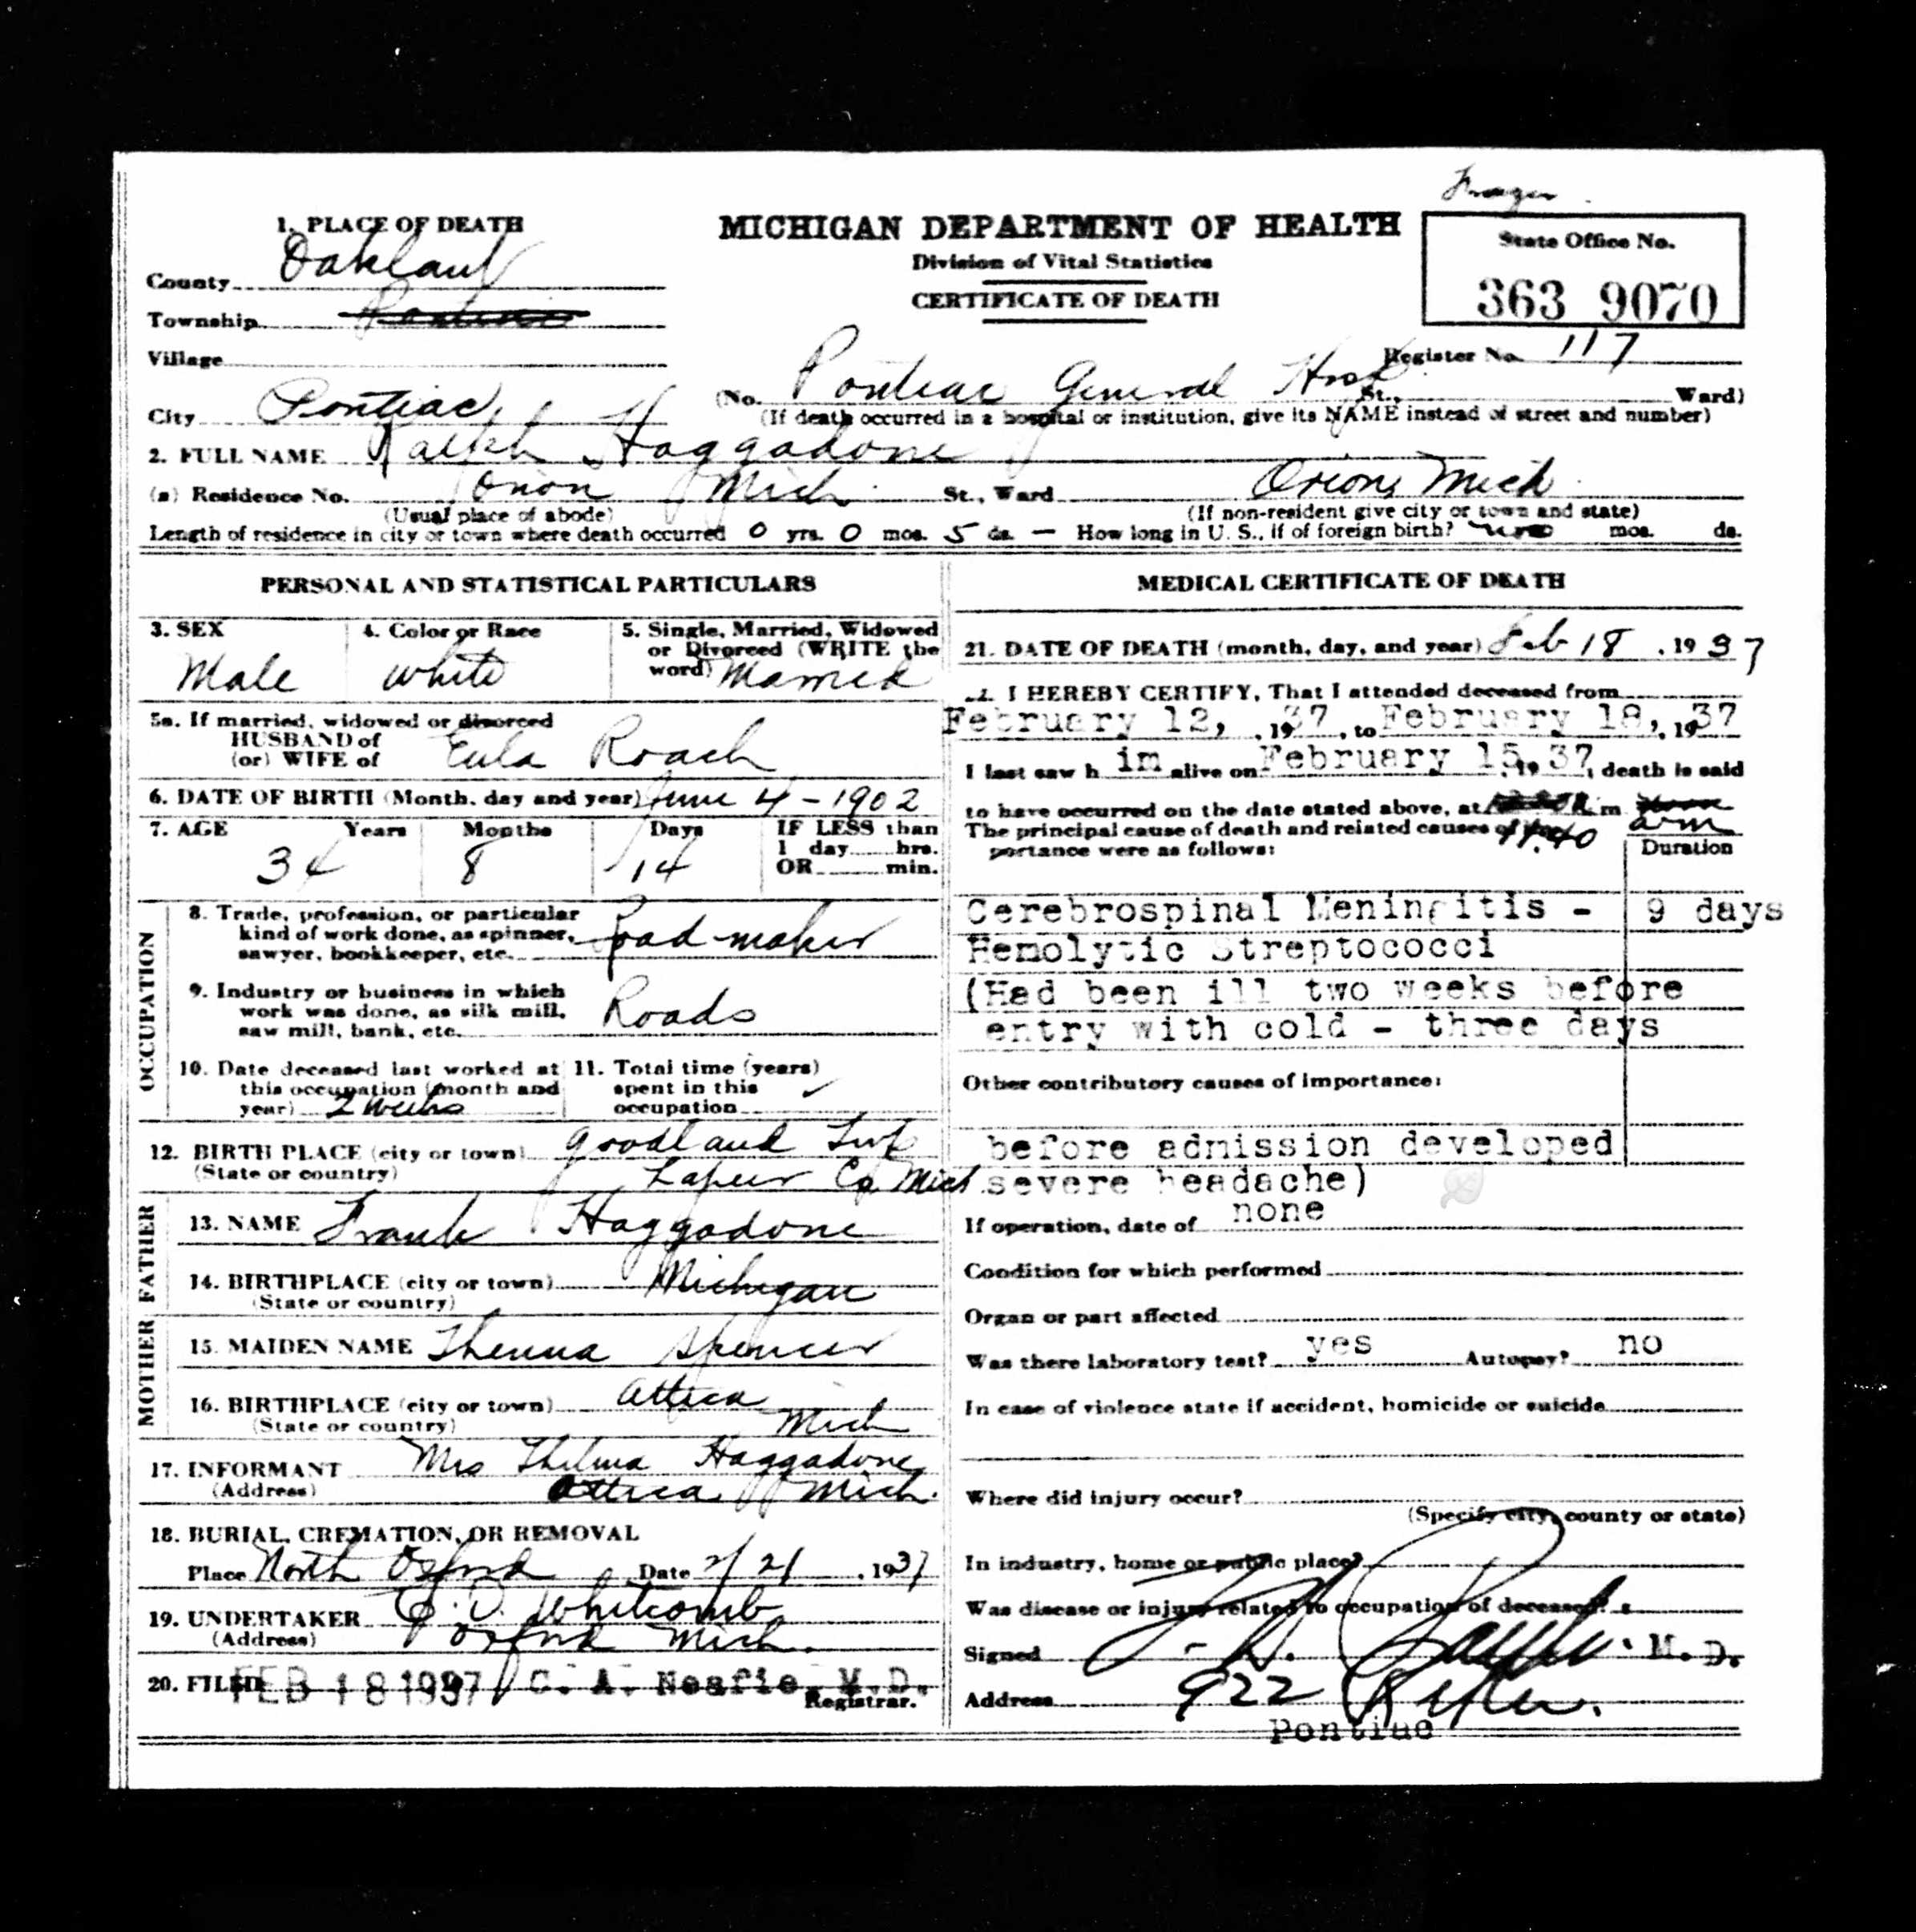 Frazer
1. PLACE OF DEATH
MICHIGAN DEPARTMENT OF HEALTH
Division of Vital Statistics
CERTIFICATE OF DEATH
State Office No.
363 9070
County Oakland
Township Pontiac
Village
Register No. 117
City Pontiac (No. Pontiac General Hosp St., Ward)
(If death occurred in a hospital or institution, give its NAME instead of street and number)
2. FULL NAME Ralph Haggadone
(a) Residence No. Orion Mich St., Ward Orion, Mich
(Usual place of abode) (If non-resident give city or town and state)
Length of residence in city or town where death occurred 0 yrs. 0 mos. 5 ds. — How long in U. S., if of foreign birth? yrs. mos. ds.
PERSONAL AND STATISTICAL PARTICULARS
3. SEX Male
4. Color or Race White
5. Single, Married, Widowed
or Divorced (WRITE the
word) Married
5a. If married, widowed or divorced
HUSBAND of
(or) WIFE of Eula Roach
6. DATE OF BIRTH (Month, day and year) June 4 - 1902
7. AGE Years Months Days IF LESS than
1 day hrs.
OR min.
34 8 14
OCCUPATION
8. Trade, profession, or particular
kind of work done, as spinner,
sawyer, bookkeeper, etc. Road-maker
9. Industry or business in which
work was done, as silk mill,
saw mill, bank, etc. Roads
10. Date deceased last worked at
this occupation (month and
year) 2 weeks
11. Total time (years)
spent in this
occupation
12. BIRTH PLACE (city or town) Goodland Twp
(State or country) Lapeer Co. Mich
FATHER
13. NAME Frank Haggadone
14. BIRTHPLACE (city or town) Michigan
(State or country)
MOTHER
15. MAIDEN NAME Spencer
16. BIRTHPLACE (city or town) Attica
(State or country) Mich
17. INFORMANT Mrs Thelma Haggadone
(Address) Attica Mich.
18. BURIAL, CREMATION, OR REMOVAL
Place North Oxford Date 2/21, 1937
19. UNDERTAKER Whitcomb
(Address) Oxford Mich.
20. FILED FEB 18 1937 C. A. Neafie, M.D.
Registrar.
MEDICAL CERTIFICATE OF DEATH
21. DATE OF DEATH (month, day, and year) Feb 18, 1937
I HEREBY CERTIFY, That I attended deceased from
February 12, 1937, to February 18, 1937
I last saw him alive on February 15, 1937, death is said
to have occurred on the date stated above, at m.
11:40 am
The principal cause of death and related causes of im-
portance were as follows:
Duration
Cerebrospinal Meningitis - 9 days
Hemolytic Streptococci
(Had been ill two weeks before
entry with cold - three days
Other contributory causes of importance:
before admission developed
severe headache)
If operation, date of none
Condition for which performed
Organ or part affected
Was there laboratory test? yes Autopsy? no
In case of violence state if accident, homicide or suicide
Where did injury occur?
(Specify city, county or state)
In industry, home or public place?
Was disease or injury related to occupation of deceased?
Signed M. D.
Address 922
Pontiac